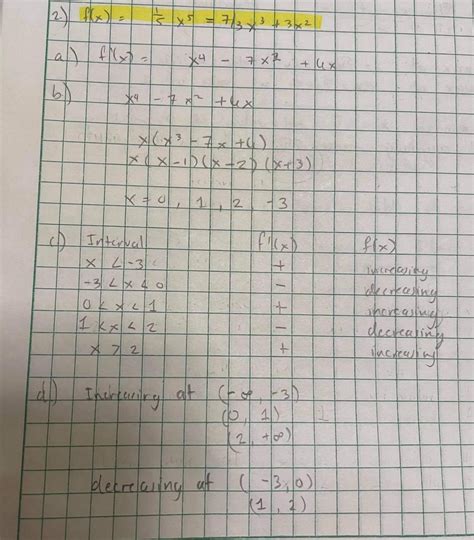 2.) f(x) = 1/5 x⁵ = 7/3 x³ + 3x²
a.) f'(x) = x⁴ - 7x² + 6x
b.) x⁴ - 7x² + 6x
x(x³ - 7x + 6)
x(x-1)(x-2)(x+3)
x = 0, 1, 2, -3
c.) Interval f'(x) f(x)
x < -3 + increasing
-3 < x < 0 - decreasing
0 < x < 1 + increasing
1 < x < 2 - decreasing
x > 2 + increasing
d.) Increasing at (-∞, -3)
(0, 1)
(2, +∞)
decreasing at (-3, 0)
(1, 2)